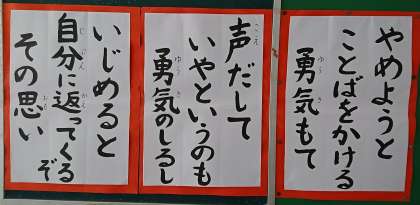 やめようと
ことばをかける
勇気もて
声だして
いやというのも
勇気のしるし
いじめると
自分に返ってくるぞ
その思い